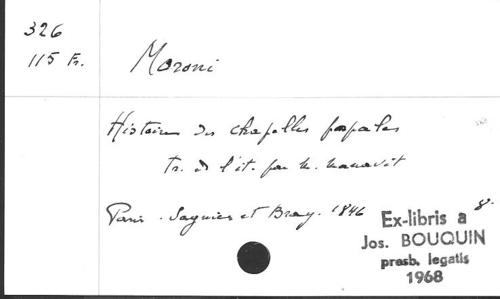 326
115 Fr.
Moroni
Histoire des chapelles papales
Tr. de l'it. par M. Manavit
Paris. Sagnier et Bray. 1846
8°
Ex-libris a
Jos. BOUQUIN
presb. legatis
1968